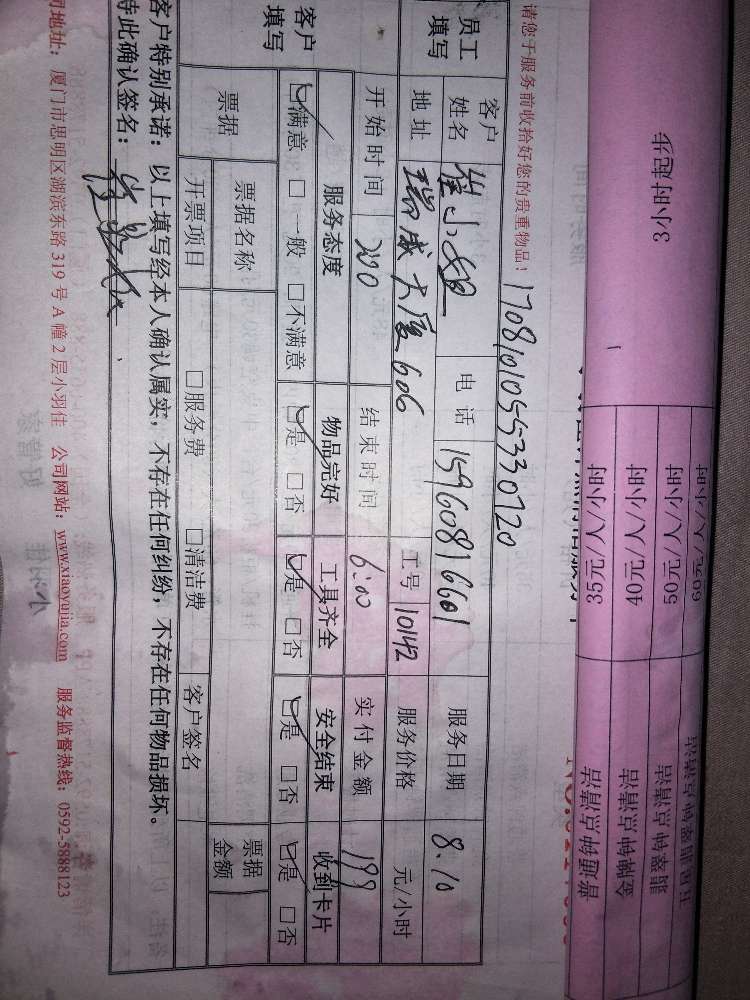 3小时起步
60元/人/小时
50元/人/小时
40元/人/小时
35元/人/小时
金牌钟点清洁
普通钟点清洁
请您于服务前收拾好您的贵重物品!
1708101055330720
员工填写
客户姓名 崔小姐 电话 15960816601 服务日期 8.10
地址 瑞成大厦606 工号 10142 服务价格 元/小时
开始时间 2:00 结束时间 6:00 实付金额 199
客户填写
服务态度 物品完好 工具齐全 安全结束 收到卡片
☑满意 □一般 □不满意 ☑是 □否 ☑是 □否 ☑是 □否 ☑是 □否
票据 票据名称 票据金额
开票项目 □服务费 □清洁费 客户签名
客户特别承诺:以上填写经本人确认属实,不存在任何纠纷,不存在任何物品损坏。
特此确认签名:
司地址:厦门市思明区湖滨东路 319 号 A 幢 2 层小羽佳 公司网站:www.xiaoyujia.com 服务监督热线:0592-5888123